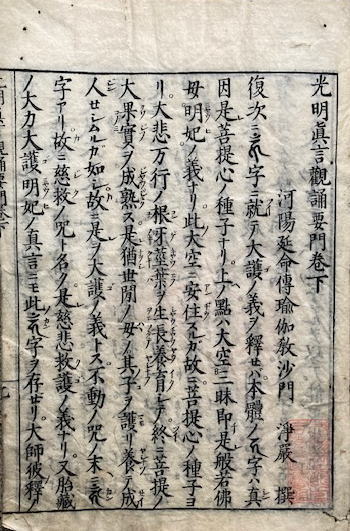 光明眞言觀誦要門卷下
河陽延命傳瑜伽教沙門 淨嚴 撰
復次ニ字ニ就テ大護ノ義ヲ釋セバ本體ノ字ハ真
因是菩提心ノ種子ナリ上ノ點ハ大空三昧即是般若佛
母明妃ノ義ナリ此大空ニ安住スルガ故ニ菩提心ノ種子ヨ
リ大悲万行ノ根牙莖葉ヲ生長養育シテ終ニ菩提ノ
大果實ヲ成熟ス是猶世間ノ母ノ其子ヲ護リ養テ成
人セシムルガ如シ故ニ是ヲ大護ノ義トス不動ノ咒ノ末ニ
字アリ故ニ慈救ノ咒ト名ク是慈悲救護ノ義ナリ又胎藏
ノ大力大護明妃ノ真言ニモ此字ヲ存セリ大師彼釋ノ